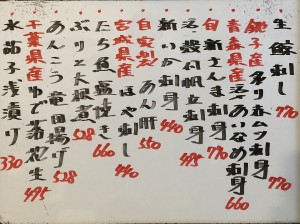 生鯨刺し 770
銚子産 炙り赤ムツ刺身 770
青森県産 活〆あいなめ刺身 660
旬 新さんま刺身 770
活〆帆立刺身 495
新いか刺身 440
自家製 あん肝 550
宮城県産 ほや刺し 440
たち魚塩焼き 660
ぶりと大根煮 528
あんこう竜田揚げ 528
千葉県産 ゆで落花生 495
水茄子浅漬り 330